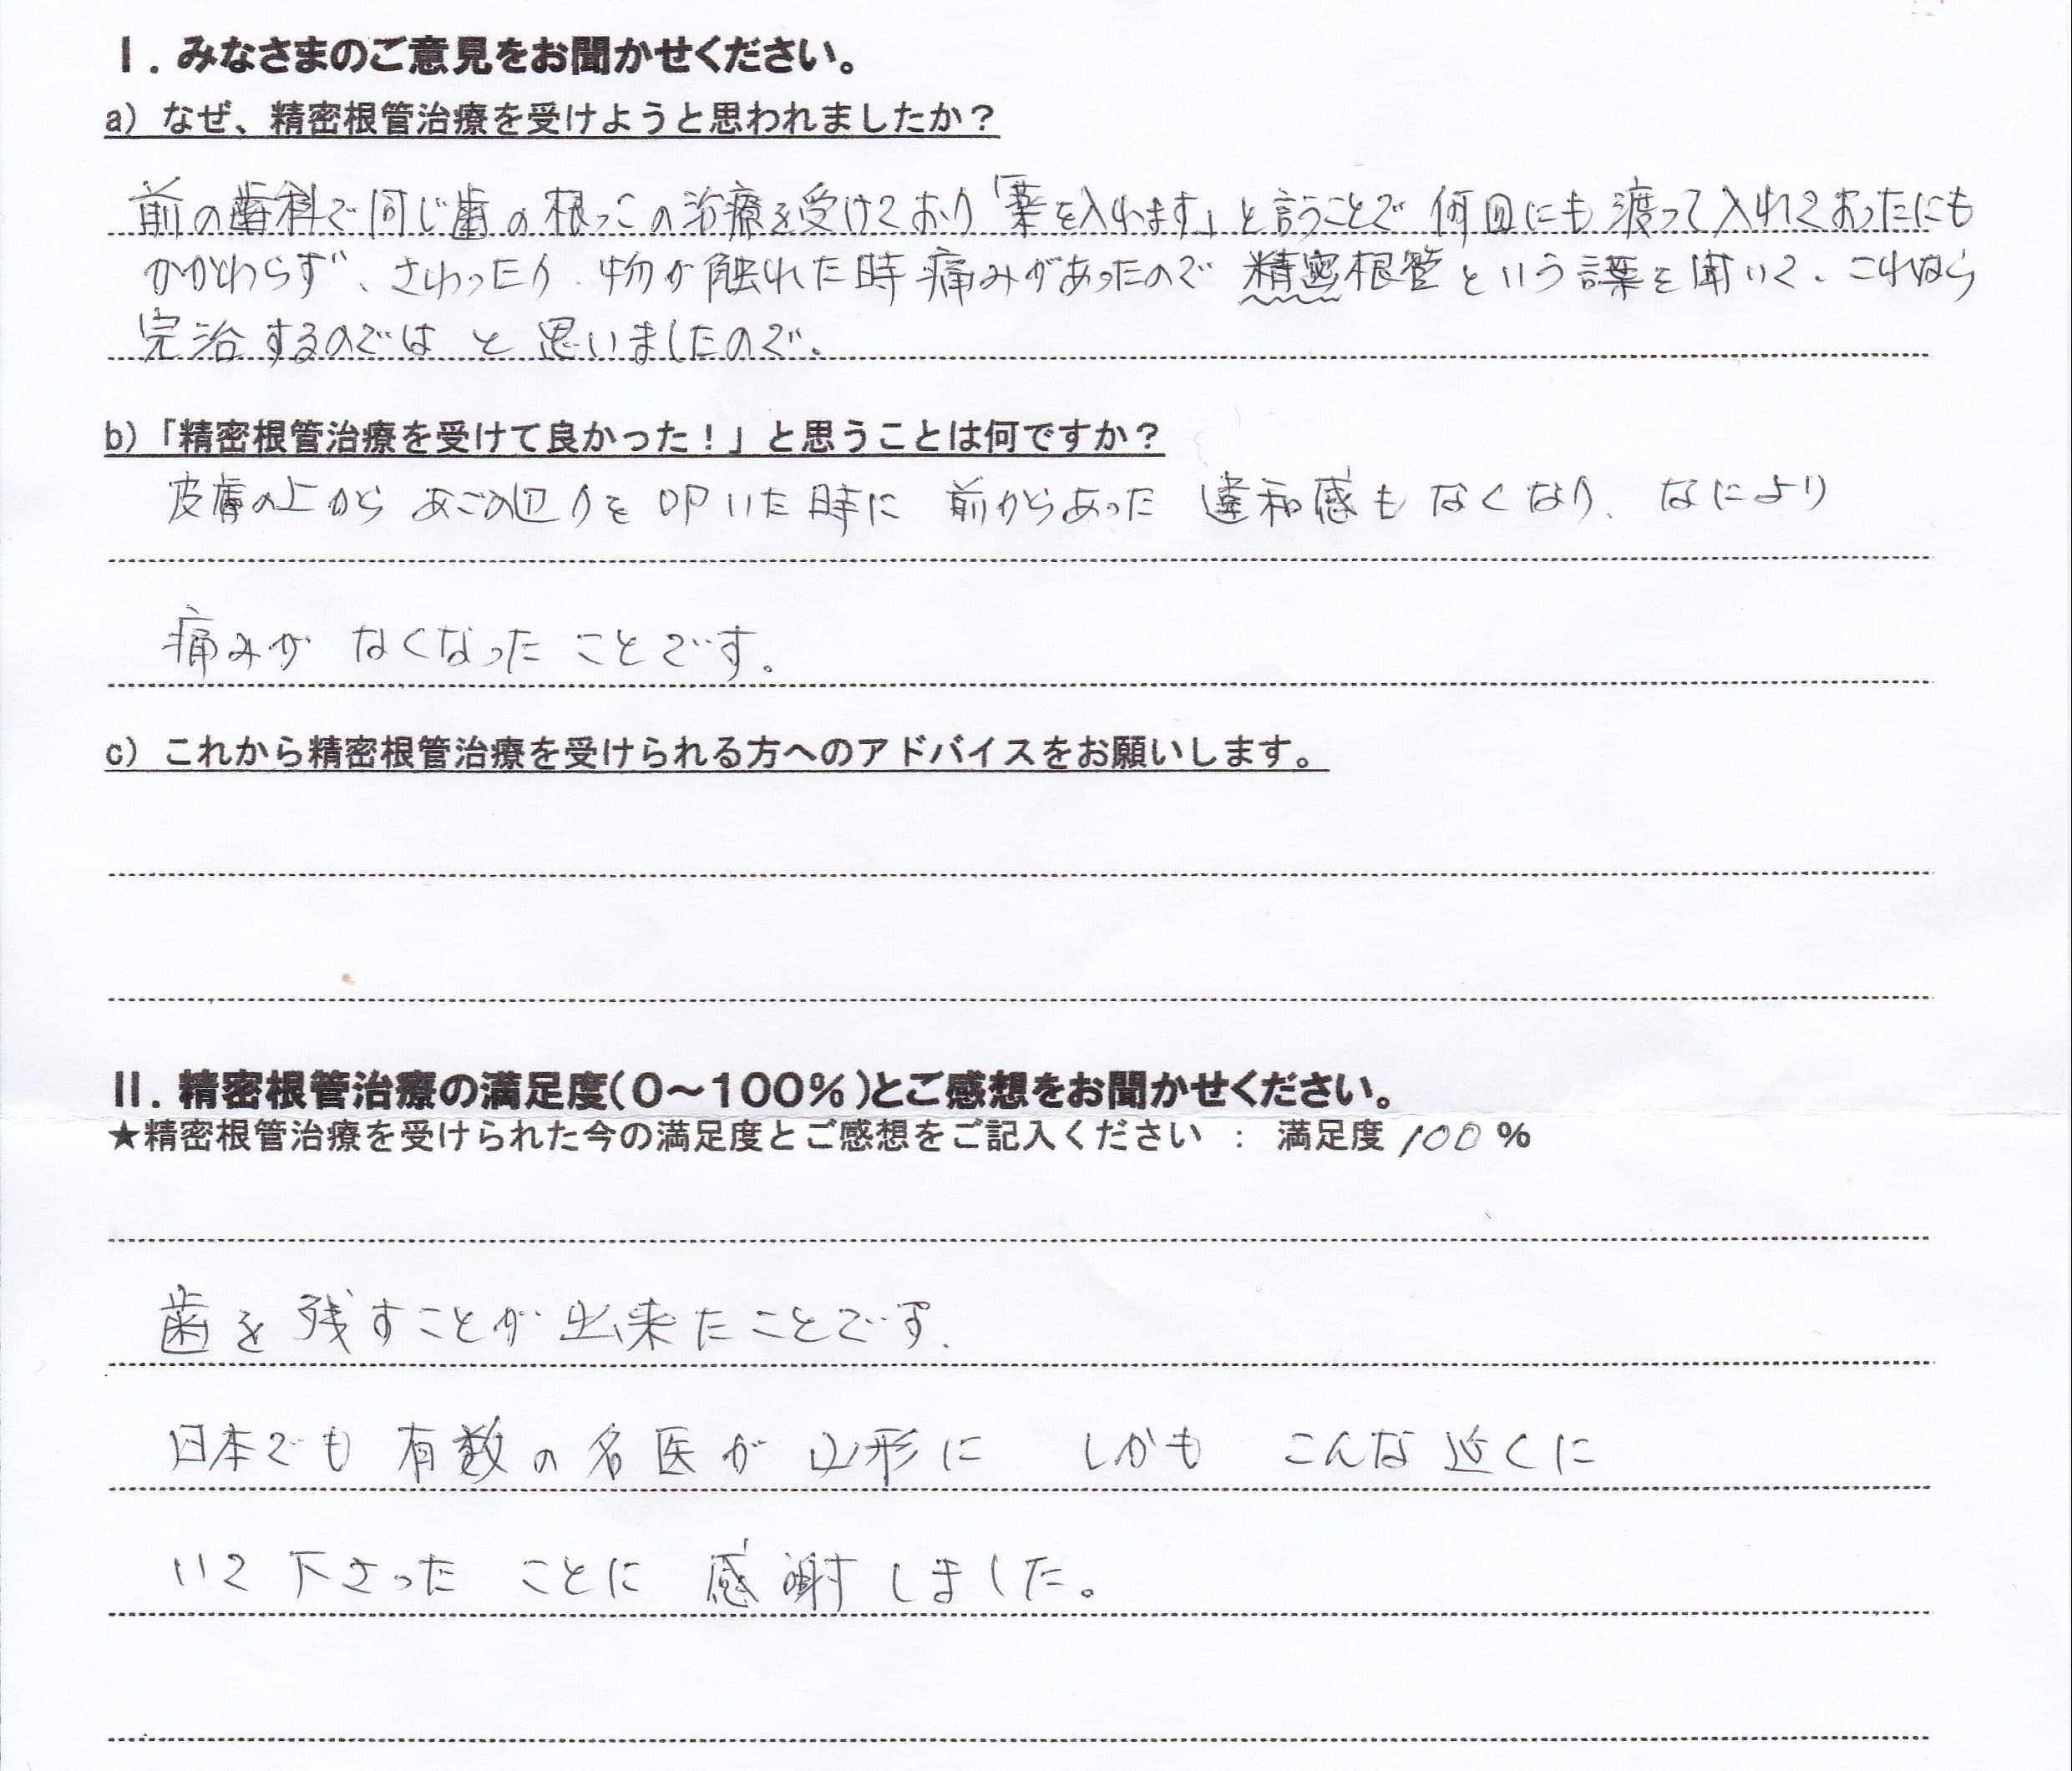 I. みなさまのご意見をお聞かせください。
a) なぜ、精密根管治療を受けようと思われましたか？
前の歯科で同じ歯の根っこの治療を受けており「薬を入れます」と言うことで何回にも渡って入れておったにも
かかわらず、さわったり、物が触れた時痛みがあったので精密根管という言葉を聞いて、これなら
完治するのではと思いましたので。
b)「精密根管治療を受けて良かった！」と思うことは何ですか？
皮膚の上からあごの辺りを叩いた時に前からあった違和感もなくなり、なにより
痛みがなくなったことです。
c) これから精密根管治療を受けられる方へのアドバイスをお願いします。
II. 精密根管治療の満足度(0～100％)とご感想をお聞かせください。
★精密根管治療を受けられた今の満足度とご感想をご記入ください ： 満足度 100 ％
歯を残すことが出来たことです。
日本でも有数の名医が山形に しかも こんな近くに
いて下さったことに感謝しました。